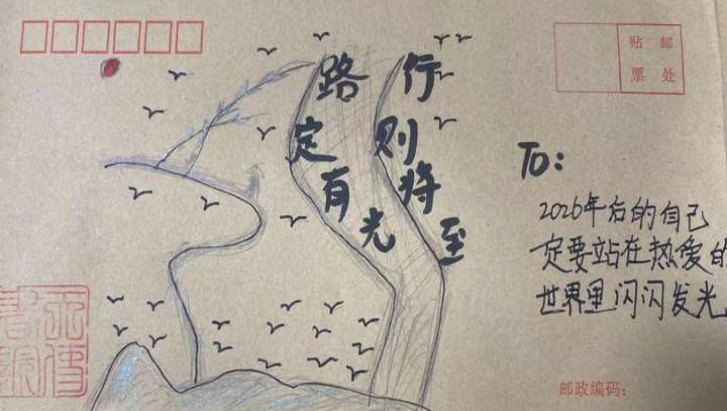 贴 邮
票 处
行则将至
路定有光
To:
2026年后的自己
一定要站在热爱的
世界里闪闪发光
邮政编码: